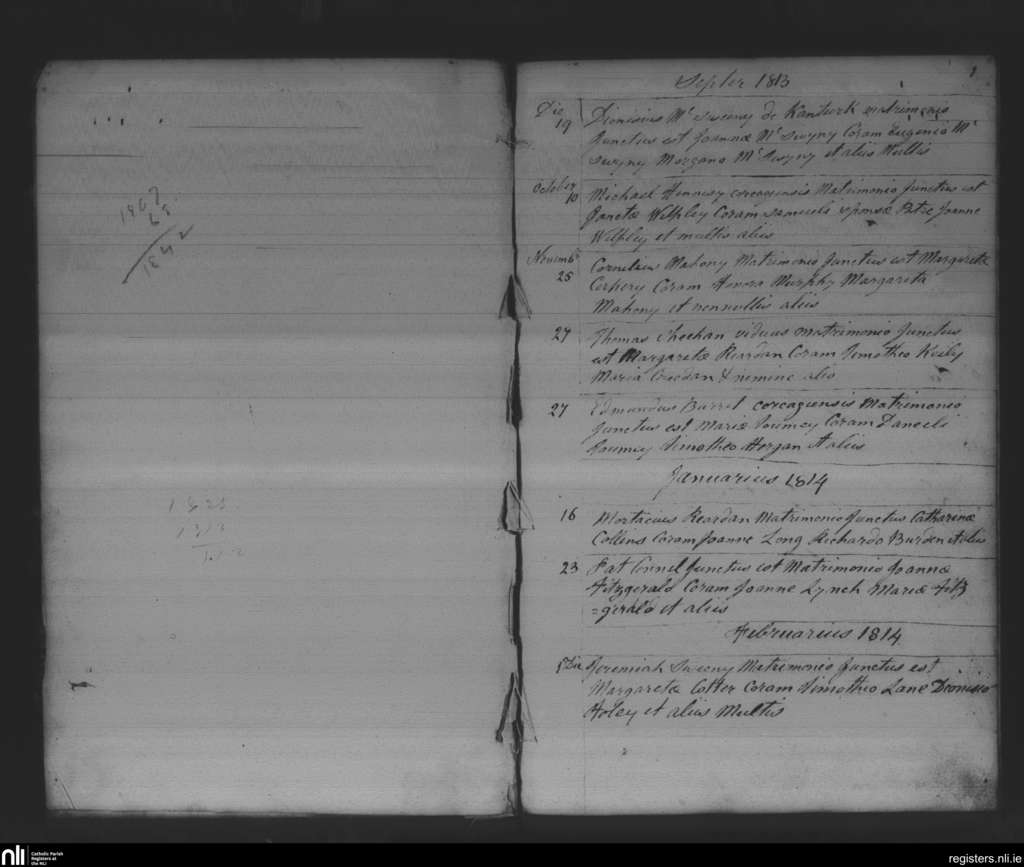 1867
65
1842
1825
1313
1
Septer 1813
Die 19 Dionisius Mc Sweeny de Kanturk matrimonio
Junctus est Joannæ Mc Swyny Coram Eugenio Mc
Swyny Morgano Mc Swyny et aliis Multis
October 10 Michael Hennesy corcagiensis Matrimonio Junctus est
Janetæ Willpley Coram Samueli sponsæ Patre Joanne
Willpley et multis aliis
Novemb 25 Cornelius Mahony Matrimonio Junctus est Margaretæ
Corkery Coram Honora Murphy Margareta
Mahony et nonnullis aliis
27 Thomas Sheehan viduus matrimonio Junctus
est Margaretæ Reardan Coram Timotheo Keily
Maria Creedan & nemine alio
27 Edmundus Barret corcagiensis Matrimonio
Junctus est Mariæ Toumey Coram Danieli
Toumey Timotheo Horgan et aliis
Januarius 1814
16 Mortacius Reardan Matrimonio Junctus Catharinæ
Collins Coram Joanne Long Richardo Burden et aliis
23 Pat Connel Junctus est Matrimonio Joannæ
Fitzgerald Coram Joanne Lynch Mariæ Fitz
=gerald et aliis
Februarius 1814
5 Die Jeremiah Sweeny Matrimonio Junctus est
Margaretæ Cotter Coram Timotheo Lane Dionisio
Foley et aliis Multis
nli Catholic Parish
Registers at
the NLI
registers.nli.ie